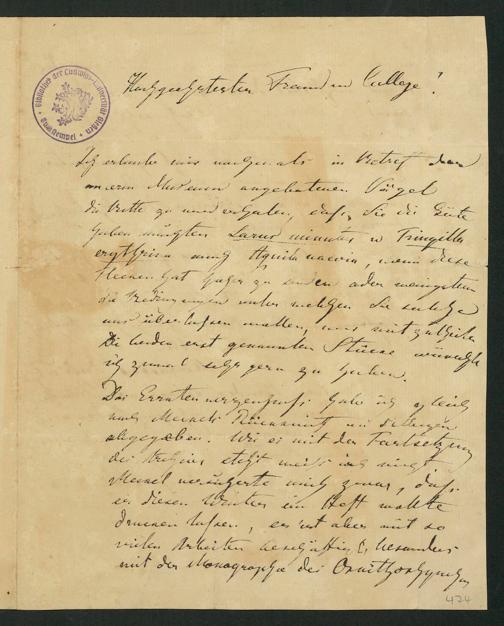 Hochgeehrtester Freund u College!
Ich erlaube mir nochmals in Betreff der
unserm Museum angebotenen Vögel
die Bitte zu wiederholen, daß Sie die Güte
haben möchten Larus minutus u Fringilla
erythrina und Aquila naevia, wenn diese
Flecken hat zu senden oder wenigstens
die Bedingungen unter welchen Sie solche
uns überlassen wollen, uns mitzutheilen
Die beiden erst genannten Stücke wünschte
ich zumal sehr gern zu haben.
Das habe ich gleich
nach Meckels
abgegeben. Wie es mit der Fortsetzung
des Archivs steht weiß ich nicht
Meckel mich zwar, daß
er diesen Winter ein Heft wollte
drucken lassen, er ist aber mit so
vielen Arbeiten beschäftigt, besonders
mit der Monographie des Ornithorhynchus
424
Bibliothek der Ludwigs-Universität Gießen